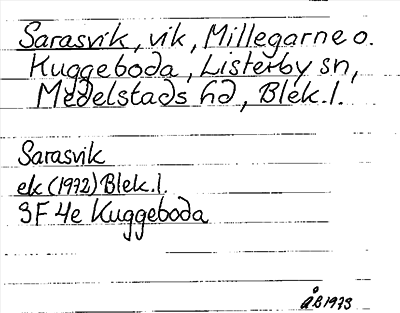 Sarasvik, vik, Millegarne o.
Kuggeboda, Listerby sn,
Medelstads hd, Blek.l.
Sarasvik
ek (1972) Blek.l.
3F 4e Kuggeboda
ÅB 1973